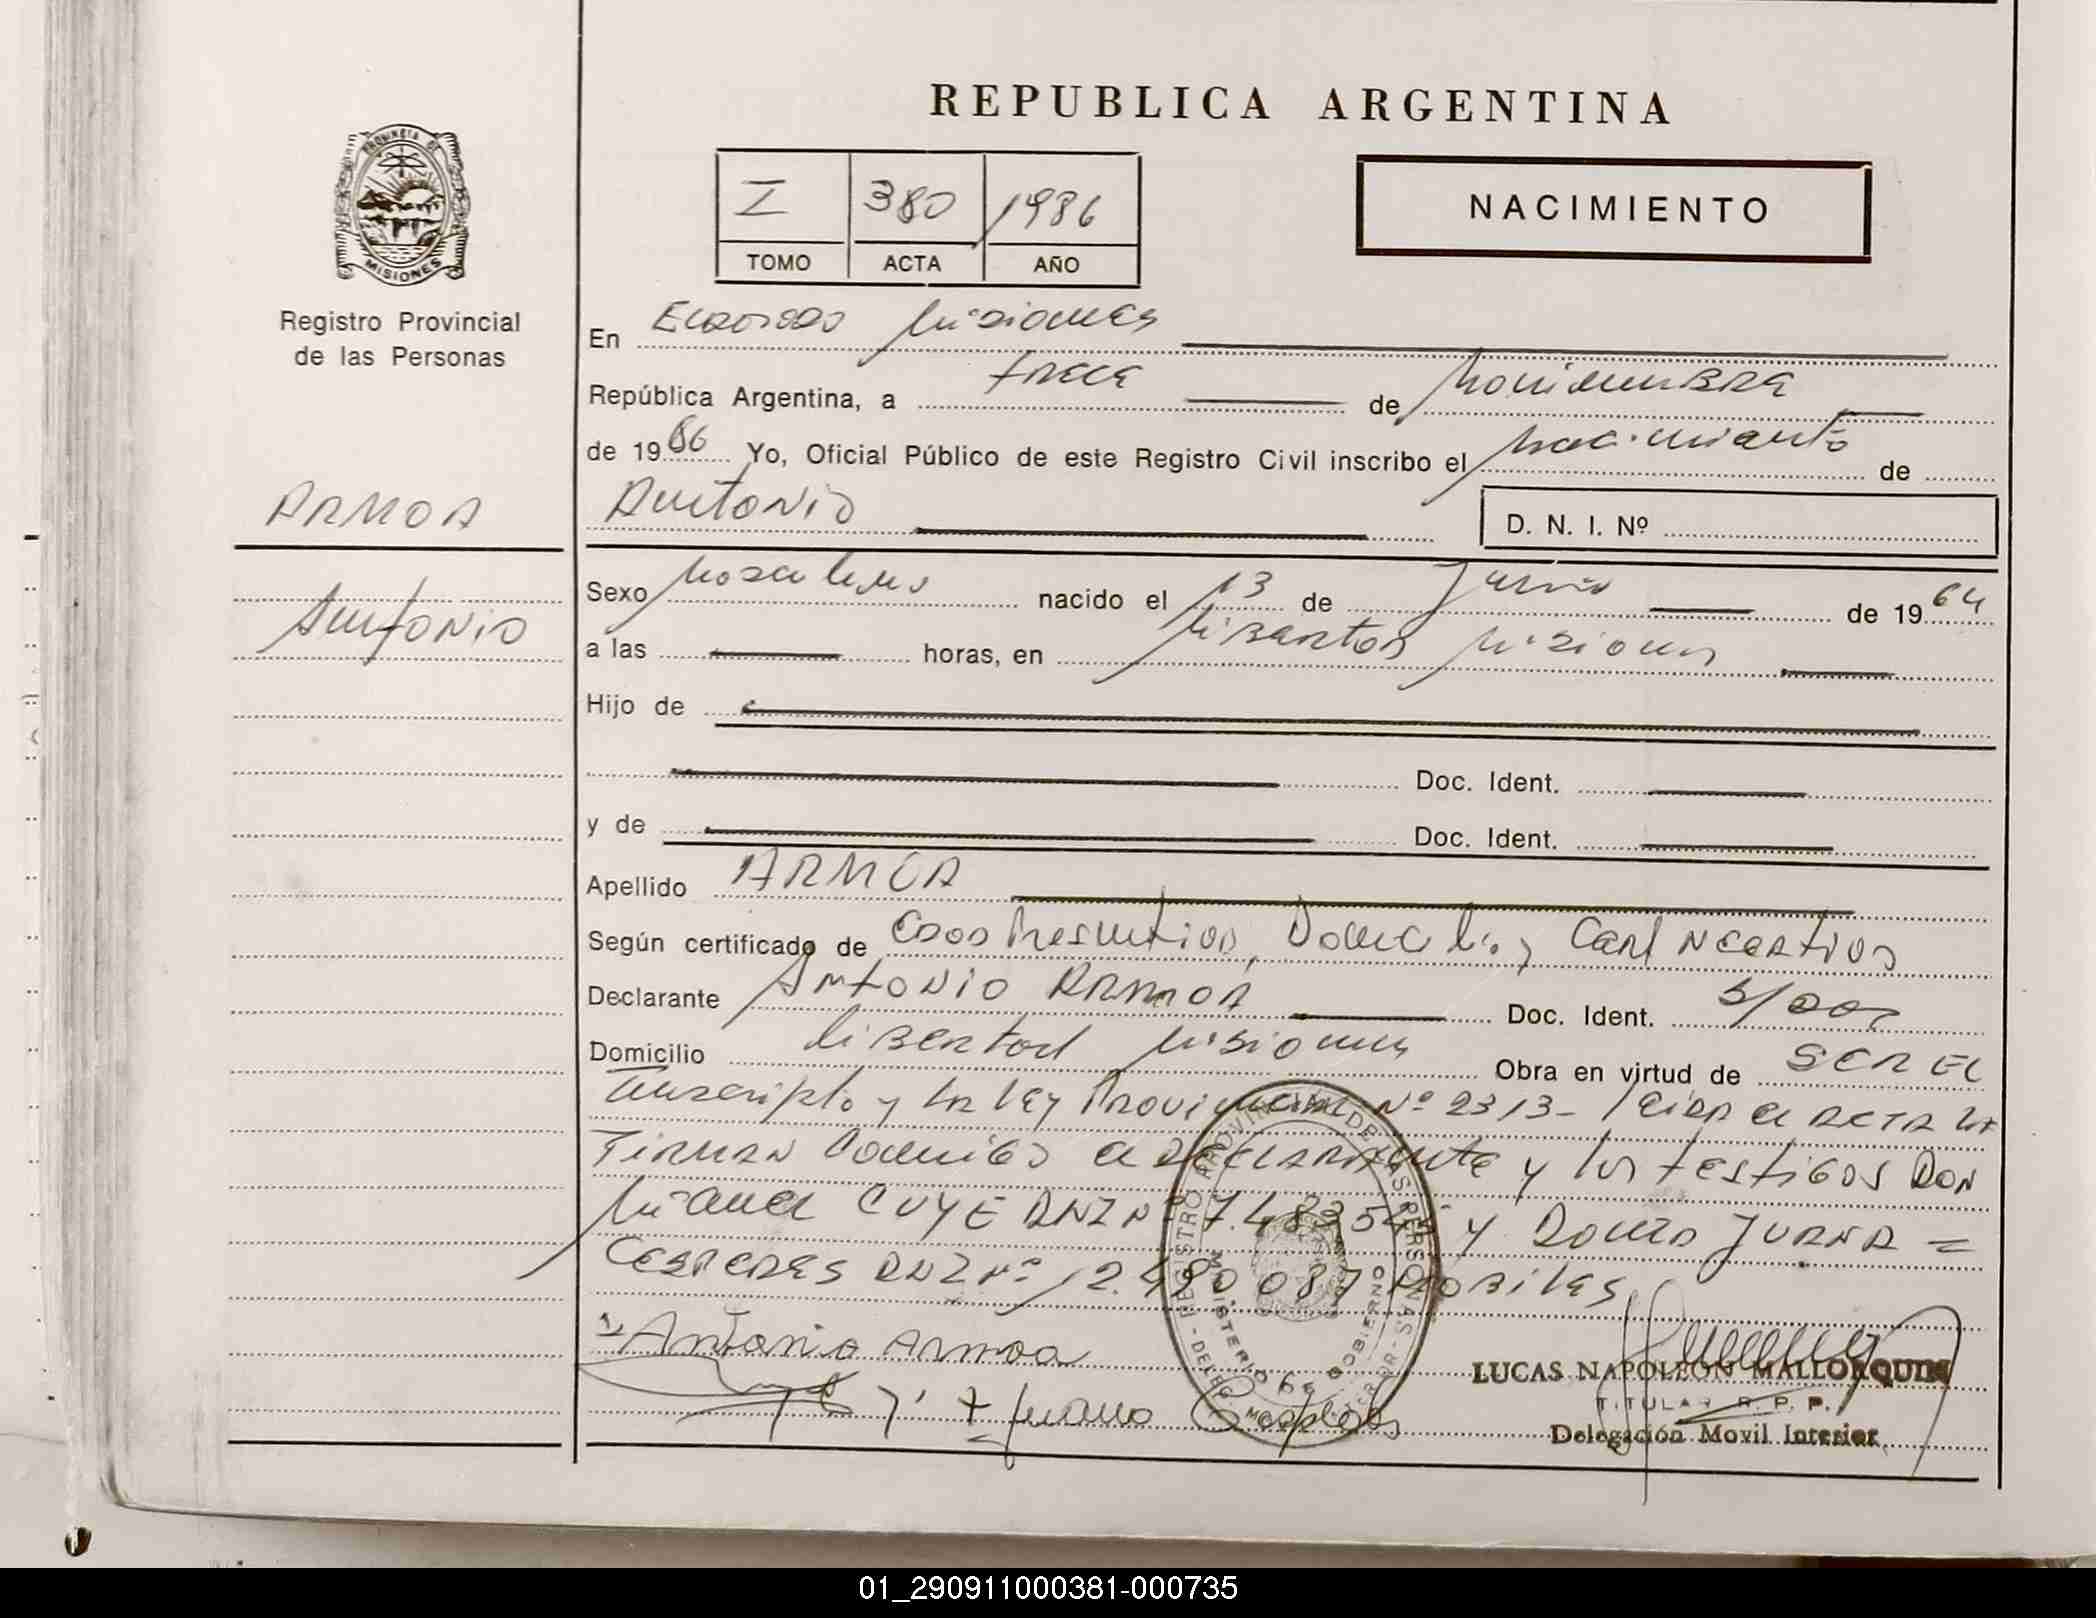 REPUBLICA ARGENTINA
PROVINCIA DE
MISIONES
Registro Provincial
de las Personas
I 380 1986
TOMO ACTA AÑO
NACIMIENTO
En Eldorado Misiones
República Argentina, a trece de Noviembre
de 1986 Yo, Oficial Público de este Registro Civil inscribo el Nacimiento de
ARMOA
Antonio
Antonio
D. N. I. Nº
Sexo Masculino nacido el 13 de Junio de 1964
a las horas, en Libertad Misiones
Hijo de
Doc. Ident.
y de Doc. Ident.
Apellido ARMOA
Según certificado de Edad Presuntiva, Domicilio, y Cert Negativo
Declarante Antonio ARMOA Doc. Ident. S/Doc
Domicilio Libertad Misiones Obra en virtud de SER EL
Inscripto y la Ley Provincial Nº 2313- Leida el Acta la
Firman Conmigo el Declarante y los testigos Don
Miguel CUYE DNI Nº 7.483545 y Doña JUANA =
DNI Nº 2.480087 Habiles
Antonio Armoa
REGISTRO PROVINCIAL DE LAS PERSONAS
MINISTERIO DE GOBIERNO
LUCAS NAPOLEON MALLORQUIN
TITULAR R. P. P.
Delegación Movil Interior
01_290911000381-000735